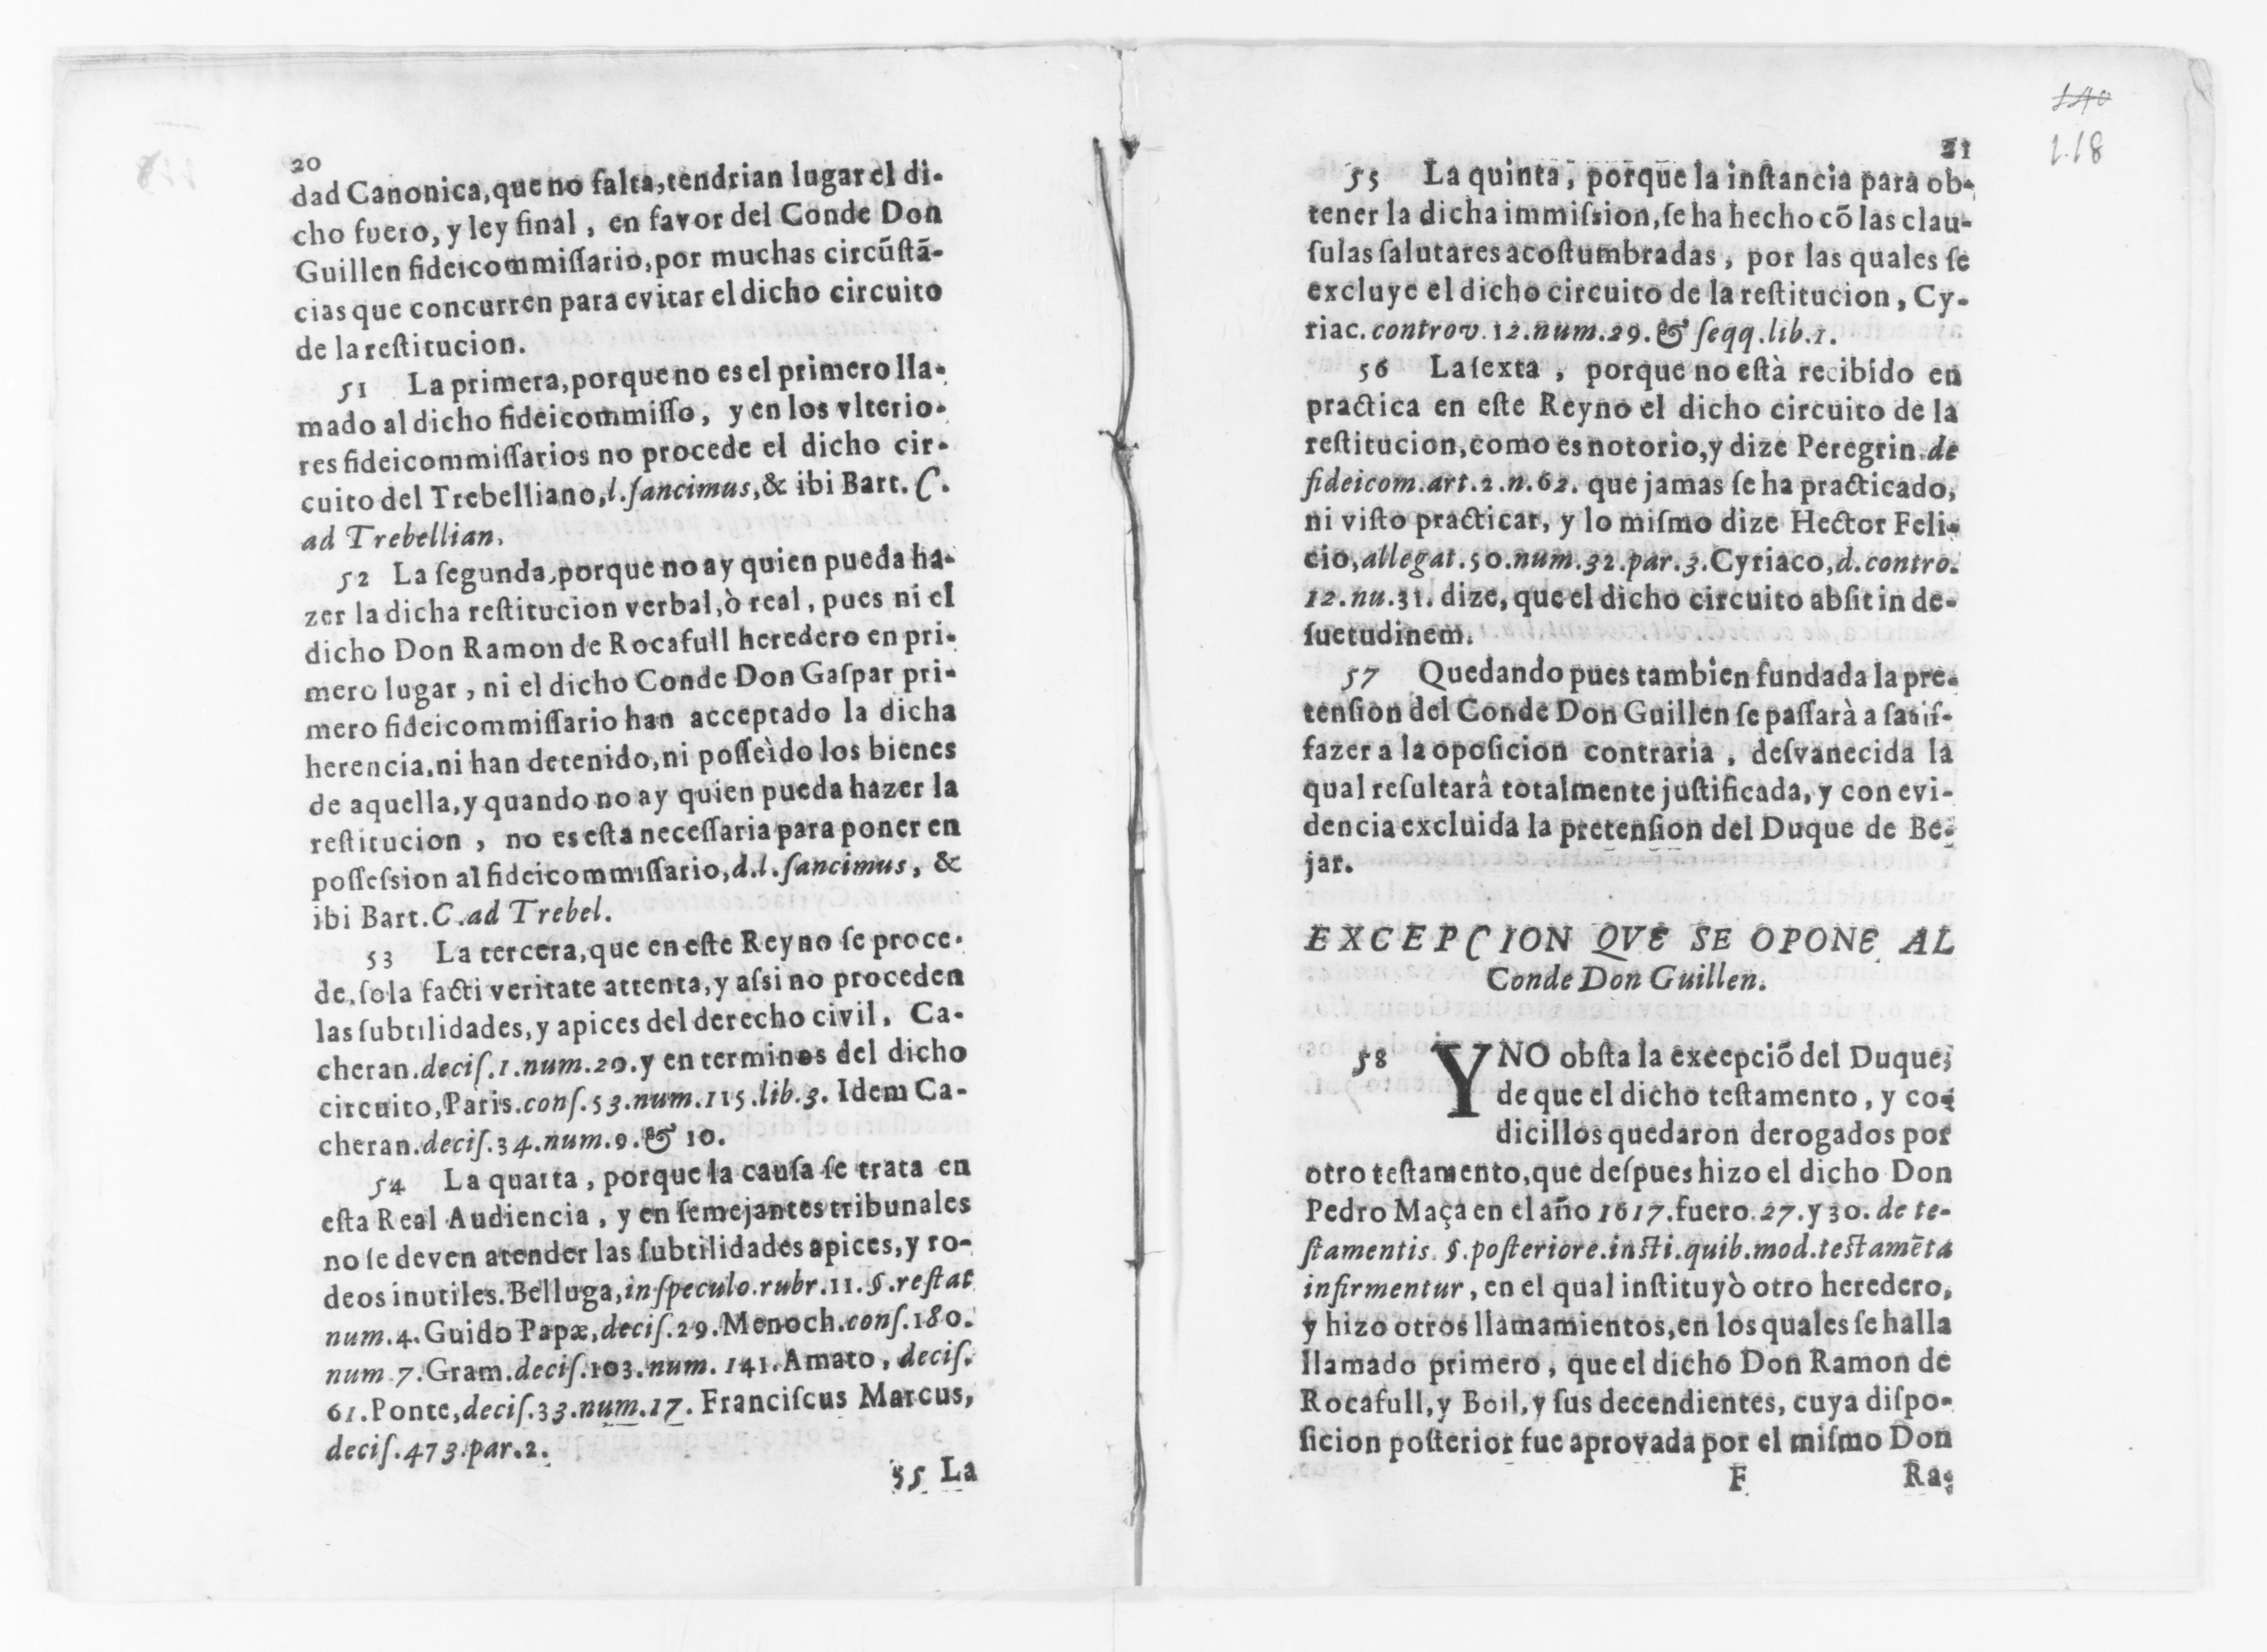 20
dad Canonica, que no falta, tendrian lugar el di-
cho fuero, y ley final, en favor del Conde Don
Guillen fideicommissario, por muchas circũstã-
cias que concurren para evitar el dicho circuito
de la restitucion.
51 La primera, porque no es el primero lla-
mado al dicho fideicommisso, y en los vlterio-
res fideicommissarios no procede el dicho cir-
cuito del Trebelliano, l. sancimus, & ibi Bart. C.
ad Trebellian.
52 La segunda, porque no ay quien pueda ha-
zer la dicha restitucion verbal, ò real, pues ni el
dicho Don Ramon de Rocafull heredero en pri-
mero lugar, ni el dicho Conde Don Gaspar pri-
mero fideicommissario han acceptado la dicha
herencia, ni han detenido, ni posseìdo los bienes
de aquella, y quando no ay quien pueda hazer la
restitucion, no es esta necessaria para poner en
possession al fideicommissario, d. l. sancimus, &
ibi Bart. C. ad Trebel.
53 La tercera, que en este Reyno se proce-
de, sola facti veritate attenta, y assi no proceden
las subtilidades, y apices del derecho civil, Ca-
cheran. decis. 1. num. 20. y en terminos del dicho
circuito, Paris. cons. 53. num. 115. lib. 3. Idem Ca-
cheran. decis. 34. num. 9. & 10.
54 La quarta, porque la causa se trata en
esta Real Audiencia, y en semejantes tribunales
no se deven atender las subtilidades apices, y ro-
deos inutiles. Belluga, in speculo. rubr. 11. §. restat
num. 4. Guido Papæ, decis. 29. Menoch. cons. 180.
num 7. Gram. decis. 103. num. 141. Amato, decis.
61. Ponte, decis. 33. num. 17. Franciscus Marcus,
decis. 473. par. 2.
55 La
140
118
21
55 La quinta, porque la instancia para ob-
tener la dicha immission, se ha hecho cõ las clau-
sulas salutares acostumbradas, por las quales se
excluye el dicho circuito de la restitucion, Cy-
riac. controv. 12. num. 29. & seqq. lib. 1.
56 La sexta, porque no està recibido en
practica en este Reyno el dicho circuito de la
restitucion, como es notorio, y dize Peregrin. de
fideicom. art. 2. n. 62. que jamas se ha practicado,
ni visto practicar, y lo mismo dize Hector Feli-
cio, allegat. 50. num. 32. par. 3. Cyriaco, d. contro.
12. nu. 31. dize, que el dicho circuito absit in de-
suetudinem.
57 Quedando pues tambien fundada la pre-
tension del Conde Don Guillen se passarà a satis-
fazer a la oposicion contraria, desvanecida la
qual resultarâ totalmente justificada, y con evi-
dencia excluida la pretension del Duque de Be-
jar.
EXCEPCION QVE SE OPONE AL
Conde Don Guillen.
58 Y NO obsta la excepciõ del Duque,
de que el dicho testamento, y co-
dicillos quedaron derogados por
otro testamento, que despues hizo el dicho Don
Pedro Maça en el año 1617. fuero. 27. y 30. de te-
stamentis. §. posteriore. insti. quib. mod. testamẽta
infirmentur, en el qual instituyò otro heredero,
y hizo otros llamamientos, en los quales se halla
llamado primero, que el dicho Don Ramon de
Rocafull, y Boil, y sus decendientes, cuya dispo-
sicion posterior fue aprovada por el mismo Don
F Ra-